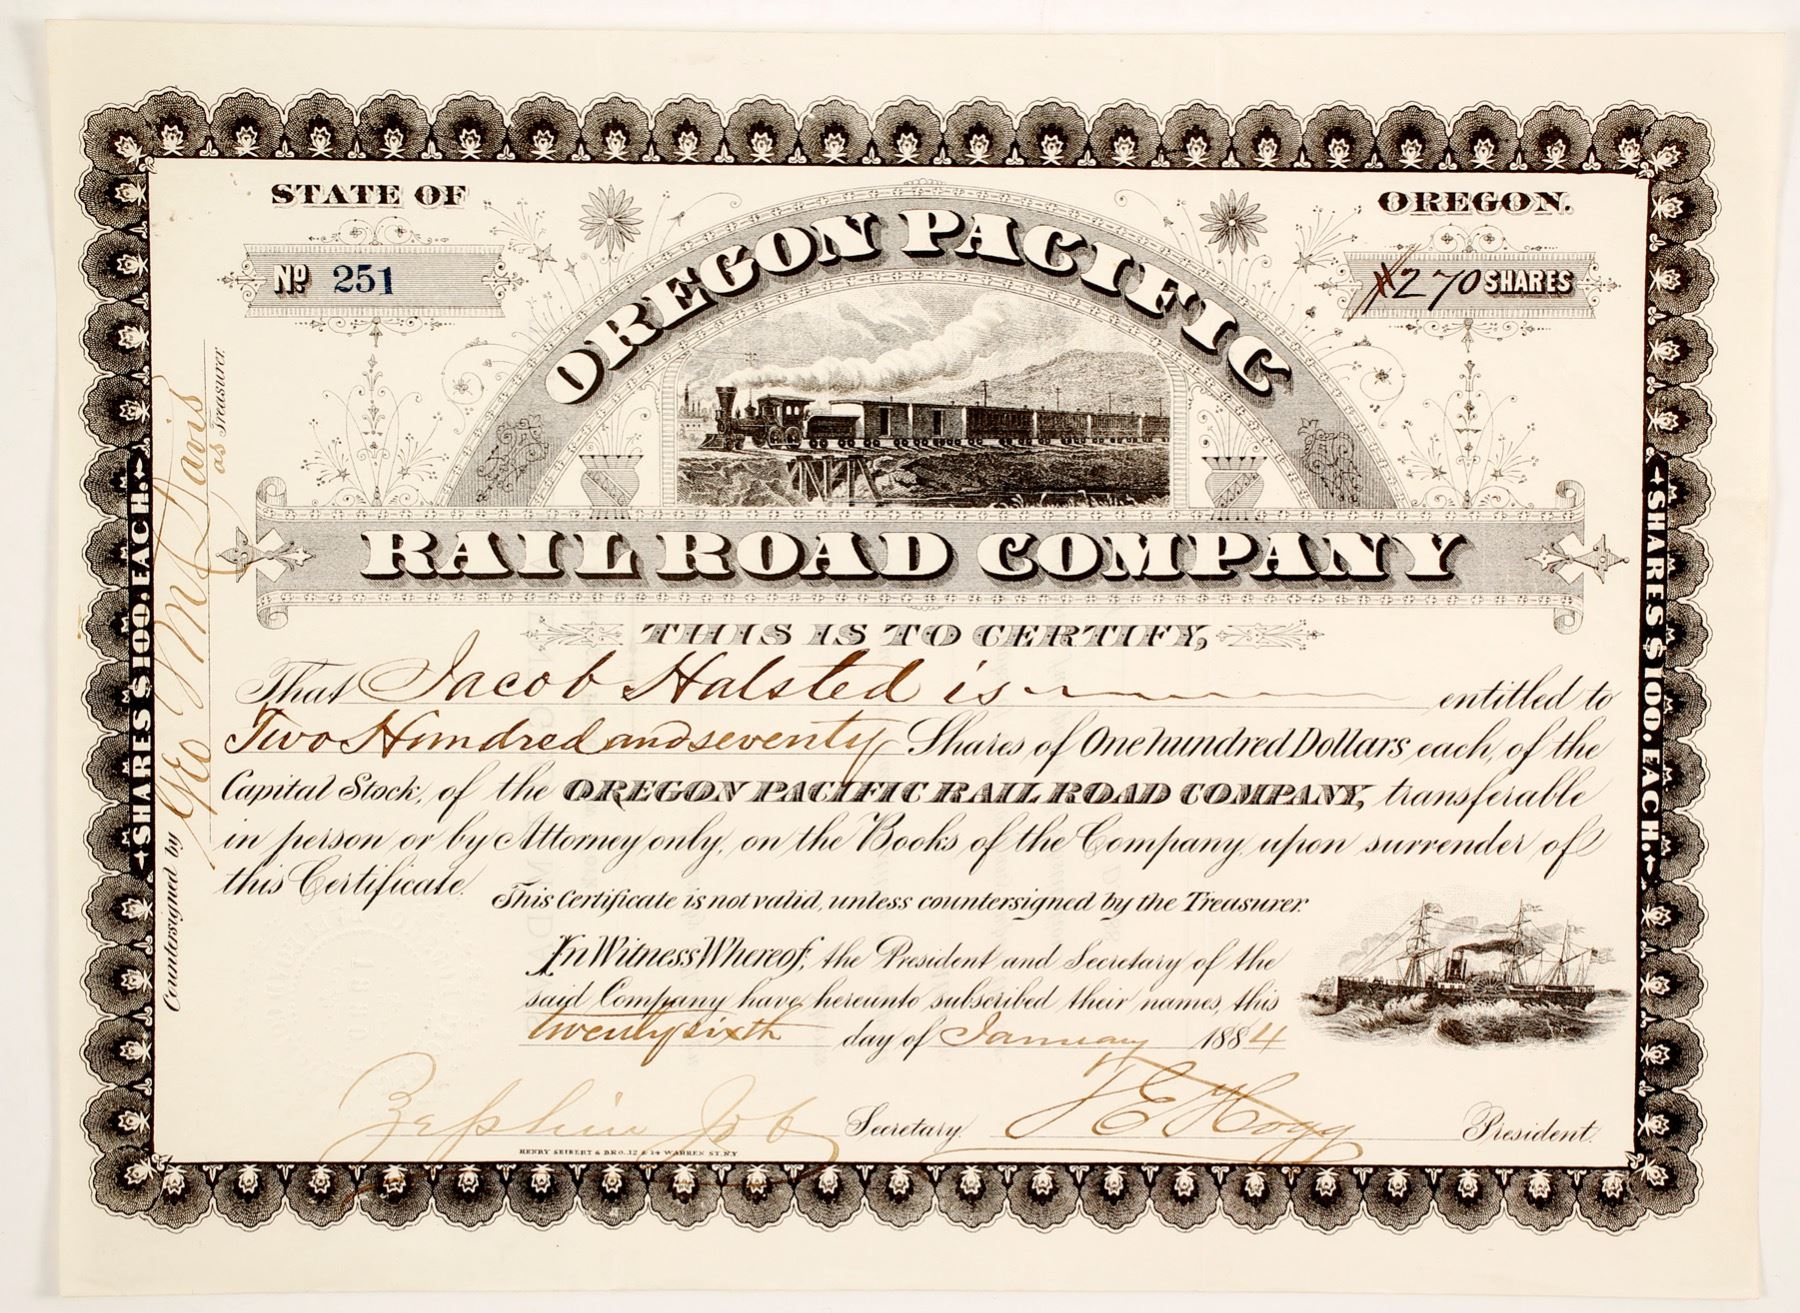 STATE OF OREGON.
No 251
#270 SHARES
OREGON PACIFIC
RAIL ROAD COMPANY
THIS IS TO CERTIFY,
That Jacob Halsted is entitled to
Two Hundred and seventy Shares of One hundred Dollars each, of the
Capital Stock, of the OREGON PACIFIC RAIL ROAD COMPANY, transferable
in person or by Attorney only, on the Books of the Company upon surrender of
this Certificate.
This Certificate is not valid, unless countersigned by the Treasurer.
In Witness Whereof, the President and Secretary of the
said Company have hereunto subscribed their names, this
twenty sixth day of January 1884
Zephin Job Secretary. T E Hogg President.
HENRY SEIBERT & BRO., 12 & 14 WARREN ST. N.Y
Countersigned by Geo M Davis
as Treasurer.
SHARES $100. EACH.
SHARES $100. EACH.